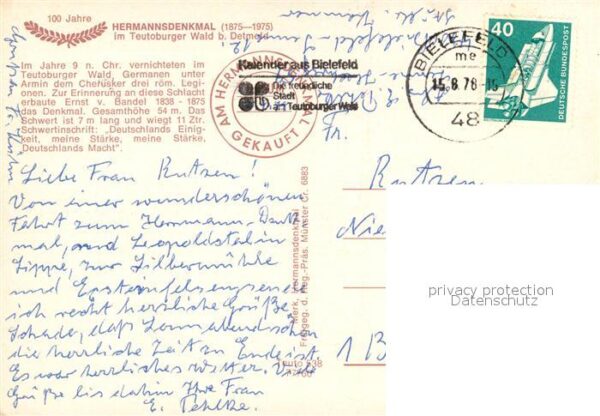 100 Jahre
HERMANNSDENKMAL (1875—1975)
im Teutoburger Wald b. Detmold
Im Jahre 9 n. Chr. vernichteten im
Teutoburger Wald, Germanen unter
Armin den Cherusker drei röm. Legi-
onen. Zur Erinnerung an diese Schlacht
erbaute Ernst v. Bandel 1838 - 1875
das Denkmal. Gesamthöhe 54 m. Das
Schwert ist 7 m lang und wiegt 11 Ztr.
Schwertinschrift: „Deutschlands Einig-
keit, meine Stärke, meine Stärke,
Deutschlands Macht".
AM HERMANNS
GEKAUFT
Kalender aus Bielefeld
Die freundliche
Stadt
am Teutoburger Wald
BIELEFELD
me
15.8.78-15
48
40
DEUTSCHE BUNDESPOST
Liebe Frau Rutzen!
Von einer wunderschönen
Fahrt zum Hermann-Denk
mal, und Leopoldstal in
Lippe, zur Silbermühle
und Externsteine senden
ich recht herzliche Grüße
Schade, daß
die herrliche Zeit zu Ende ist.
Es war herrliches Wetter. Viele
Grüße bis dahin Ihre Frau
E. Pehlke.
Merk. Hermannsdenkmal
Freigeg. d. Reg.-Präs. Münster Nr. 6883
Teuto 538
Rutzen
Nie
1 B
privacy protection
Datenschutz